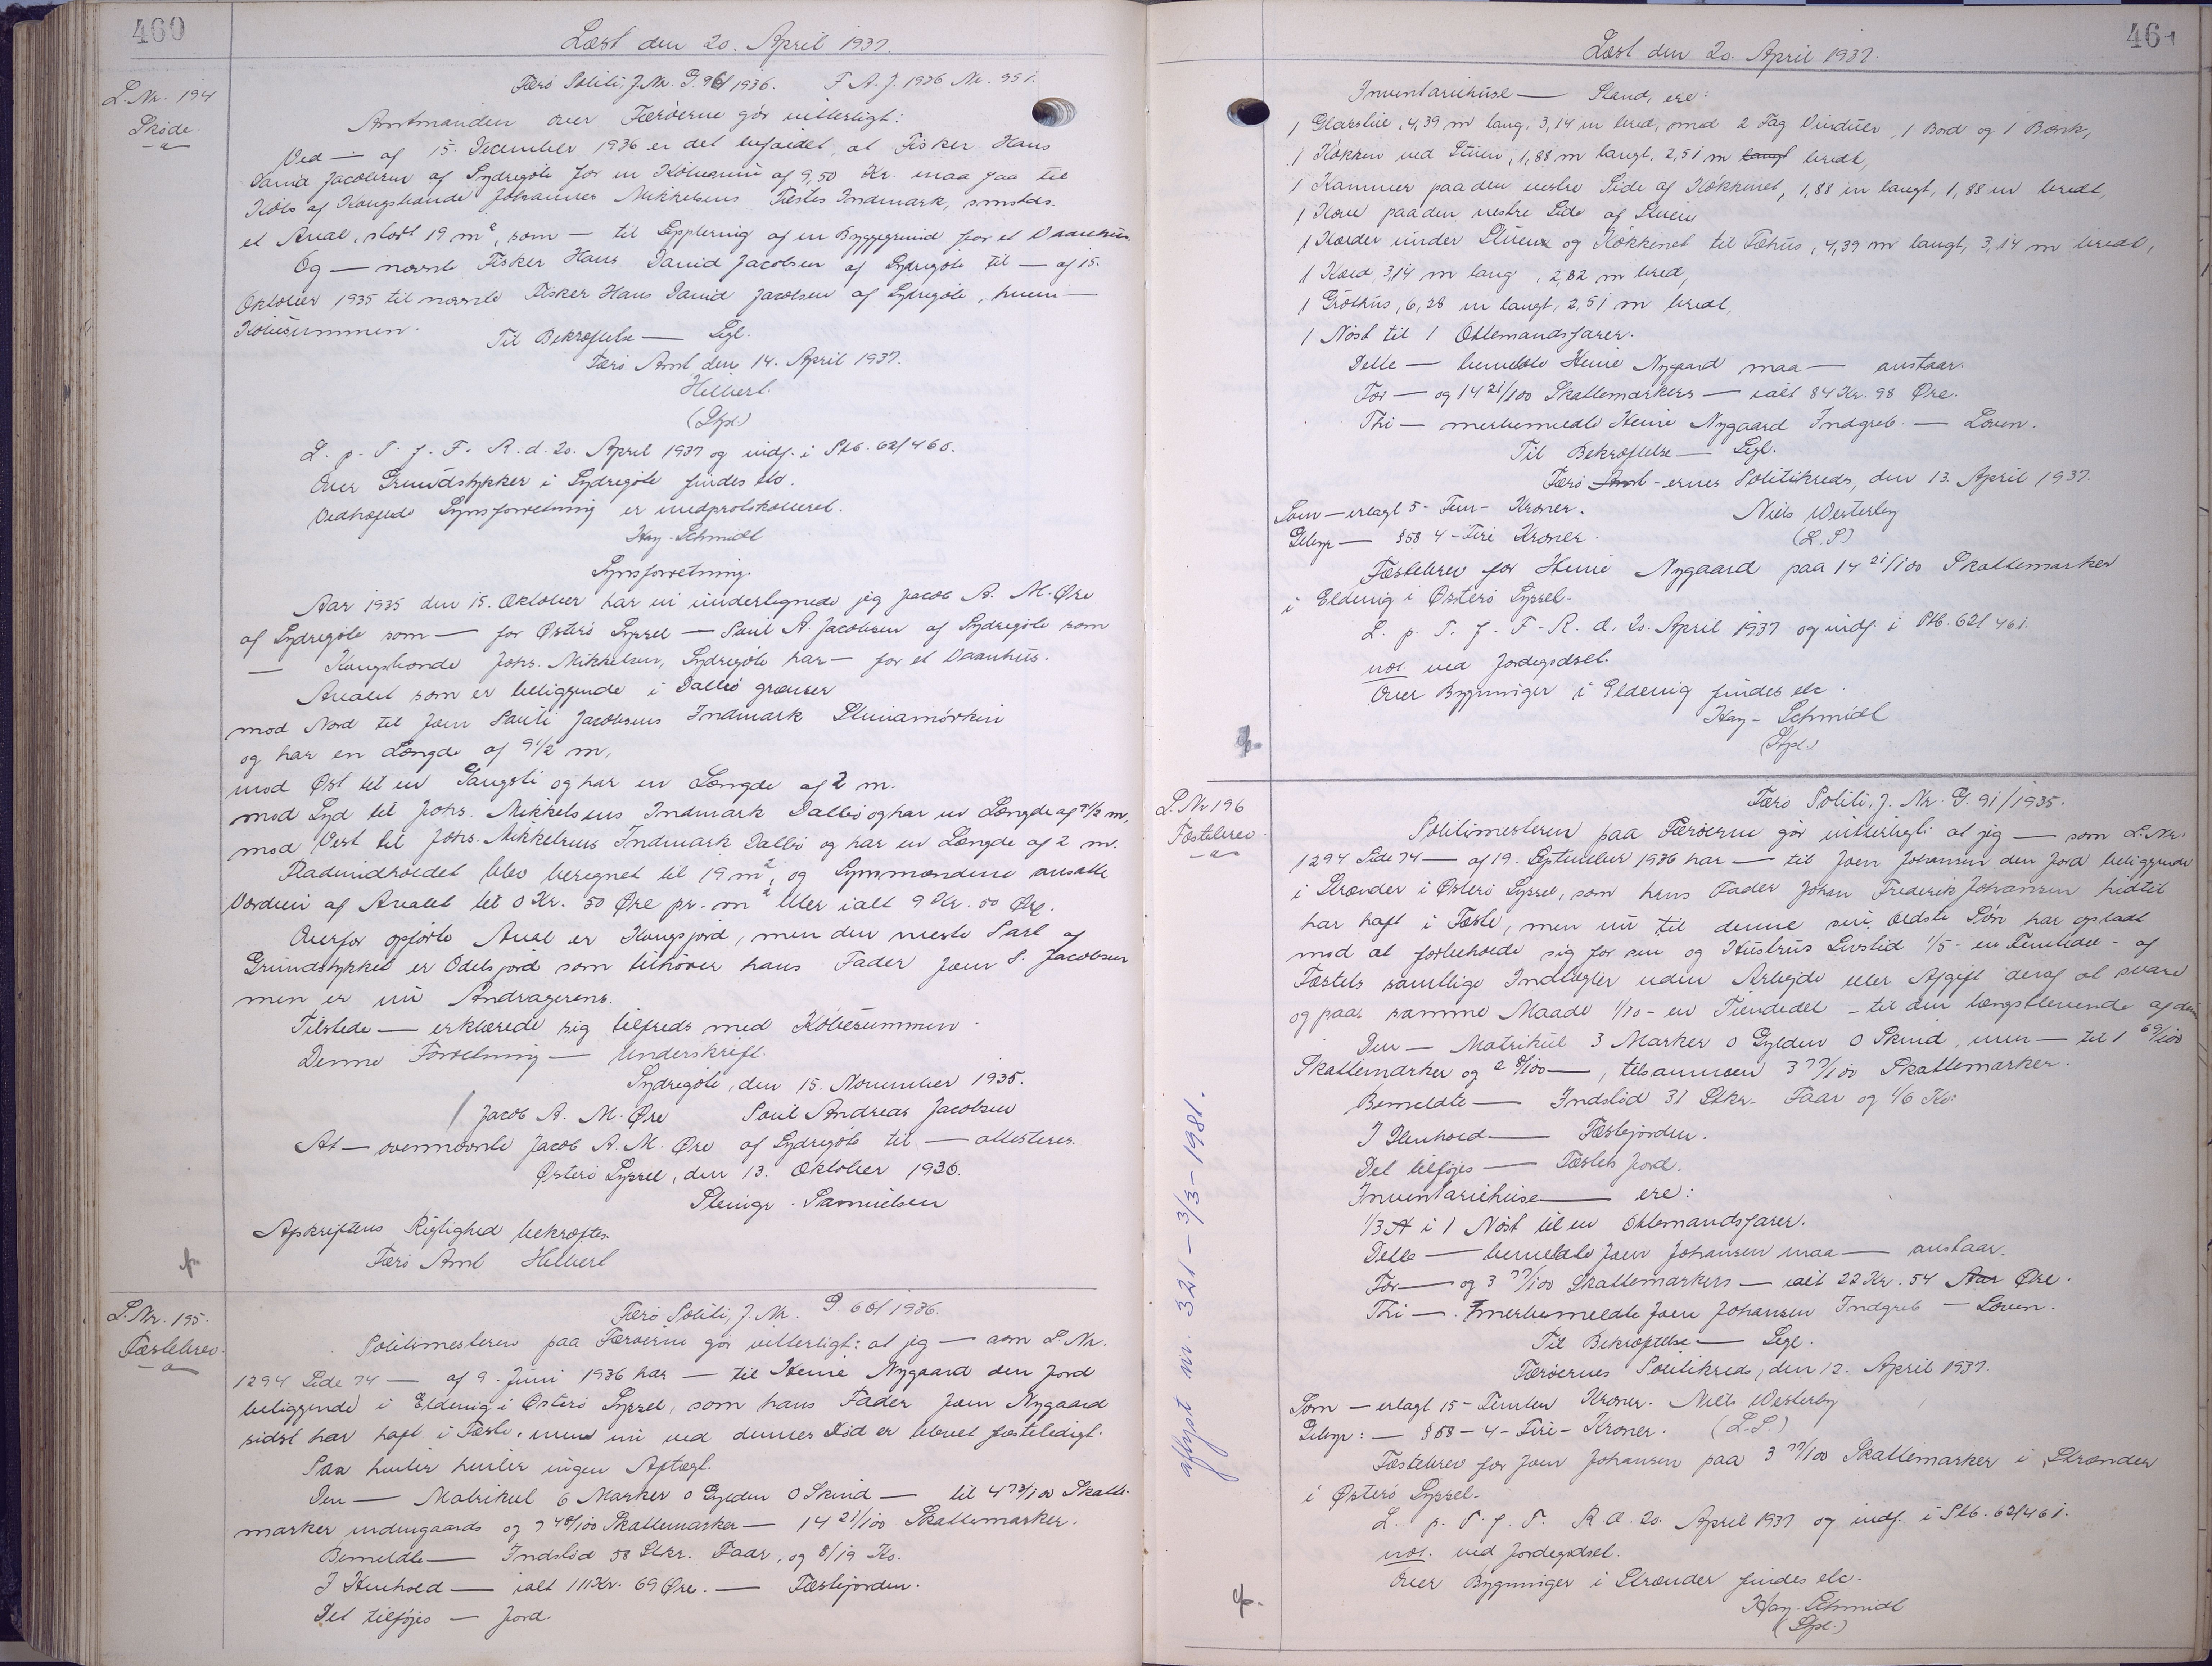 460
Læst den 20. April 1937.
L. Nr. 194
Skøde.
Færø Politi, J. Nr. G. 96/1936. F. A. J. 1936 Nr. 951.
Amtmanden over Færøerne gör vitterligt:
Ved — af 15. December 1936 er det bifaldet, at Fisker Hans
David Jacobsen af Sydregöte for en Købesum af 9,50 Kr. maa faa til
Købs af Kongsbonde Johannes Mikkelsens Fæstes Indmark, smstds.
et Areal, stort 19 m², som — til Supplering af en Byggegrund for et Vaanhus.
Og — nævnte Fisker Hans David Jacobsen af Sydregöte til — af 15.
Oktober 1935 til nævnte Fisker Hans David Jacobsen af Sydregöte, hvem —
Købesummen.
Til Bekræftelse — Segl.
Færö Amt den 14. April 1937.
Hilbert.
(Stpl.)
L. p. T. f. F. R. d. 20. April 1937 og indf. i Skb. 62/460.
Over Grundstykker i Sydregöte findes etc.
Vedhæftede Synsforretning er medprotokolleret.
Kay-Schmidt
Synsforretning.
Aar 1935 den 15. Oktober har vi undertegnede jeg Jacob A. M. Øre
af Sydregöte som — for Østerö Syssel — Poul A. Jacobsen af Sydregöte som
— Kongsbonde Johs. Mikkelsen, Sydregöte har — for et Vaanhus.
Arealet som er beliggende i Dalbö grænser
mod Nord til Joen Pauli Jacobsens Indmark
og har en Længde af 9 1/2 m,
mod Øst til en Gangsti og har en Længde af 2 m.
mod Syd til Johs. Mikkelsens Indmark Dalbö og har en Længde af 9 1/2 m,
mod Vest til Johs. Mikkelsens Indmark Dalbö og har en Længde af 2 m.
Fladeindholdet blev beregnet til 19 m², og Synsmændene ansatte
Værdien af Arealet til 0 Kr. 50 Øre pr. m² eller ialt 9 Kr. 50 Øre.
Overfor opförte Areal er Kongsjord, men den meste Part af
Grundstykket er Odelsjord som tilhører hans Fader Joen P. Jacobsen
men er nu Andragerens.
Tilstede — erklærede sig tilfreds med Købesummen.
Denne Forretning — Underskrift.
Sydregöte, den 15. November 1935.
Jacob A. M. Øre Poul Andreas Jacobsen
At — ovennævnte Jacob A. M. Øre af Sydregöte til — attesteres.
Østerö Syssel, den 13. Oktober 1936.
Samuelsen
Afskriftens Rigtighed bekræftes.
Færö Amt Hilbert
L. Nr. 195.
Fæstebrev.
Færö Politi, J. Nr. G. 60/1936.
Politimesteren paa Færøerne gör vitterligt: at jeg — som L. Nr.
1294 Side 74 — af 9. Juni 1936 har — til Heine Nygaard den Jord
beliggende i Eldevig i Østerö Syssel, som hans Fader Joen Nygaard
sidst har haft i Fæste, men nu ved dennes Död er blevet fæsteledigt.
Paa hviler hviler ingen Aftægt.
Den — Matrikul 6 Marker 0 Gylden 0 Skind — til 4 73/100 Skatte-
marker indengaards og 9 48/100 Skattemarker — 14 21/100 Skattemarker.
Bemeldte — Indslöd 58 Stkr. Faar, og 8/19 Ko.
I Henhold — ialt 111 Kr. 69 Øre. — Fæstejorden.
Det tilføjes — Jord.
461
Læst den 20. April 1937.
Inventariehuse — Stand, ere:
1 Glasstue, 4,39 m lang, 3,14 m bred, med 2 Fag Vinduer, 1 Bord og 1 Bænk,
1 Køkken ved Stuen, 1,88 m langt, 2,51 m langt bredt,
1 Kammer paa den vestre Side af Køkkenet, 1,88 m langt, 1,88 m bredt,
1 Kove paa den vestre Side af Stuen
1 Kælder under Stuen og Køkkenet til Fæhus, 4,39 m langt, 3,14 m bredt,
1 3,14 m lang, 2,82 m bred,
1 Gróthus, 6,28 m langt, 2,51 m bredt,
1 Nöst til 1 Ottemandsfarer.
Dette — bemeldte Heine Nygaard maa — anstaar.
For — og 14 21/100 Skattemarkers — ialt 84 Kr. 98 Øre.
Thi — merbemeldte Heine Nygaard Indgreb — Loven.
Til Bekræftelse — Segl.
Færö Amt -ernes Politikreds, den 13. April 1937.
Som — erlagt 5 - Fem - Kroner. Niels Westerby
Gebyr — § 58 4 - Fire Kroner. (L. S.)
Fæstebrev for Heine Nygaard paa 14 21/100 Skattemarker
i Eldevig i Østerö Syssel.
L. p. T. f. F. R. d. 20. April 1937 og indf. i Skb. 62/461.
not. ved Jordegodset.
Over Bygninger i Eldevig findes etc.
Kay-Schmidt
(Stpl.)
L. Nr 196
Fæstebrev.
Færö Politi, J. Nr. G. 91/1935.
Politimesteren paa Færøerne gör vitterligt: at jeg — som L. Nr.
1294 Side 74 — af 19. September 1936 har — til Joen Johansen den Jord beliggende
i Strænder i Østerö Syssel, som hans Fader Johan Frederik Johansen hidtil
har haft i Fæste, men nu til denne sin ældste Sön har opladt
mod at forbeholde sig for sin og Hustrus Livstid 1/5 - en Femtedel - af
Fæstets samtlige Indtægter uden Arbejde eller Afgift deraf at svare
og paa samme Maade 1/10 - en Tiendedel - til den længstlevende af dem
Den — Matrikul 3 Marker 0 Gylden 0 Skind, men — til 1 69/100
Skattemarker og 2 8/100 —, tilsammen 3 77/100 Skattemarker.
Bemeldte — Indslöd 31 Stkr. Faar og 1/6 Ko.
I Henhold — Fæstejorden.
Det tilføjes — Fæstets Jord.
Inventariehuse — ere:
1/3 A i 1 Nöst til en Ottemandsfarer.
Dette — bemeldte Joen Johansen maa — anstaar.
For — og 3 77/100 Skattemarkers — ialt 22 Kr. 54 Aar Øre.
Thi — merbemeldte Joen Johansen Indgreb — Loven.
Til Bekræftelse — Segl.
Færøernes Politikreds, den 12. April 1937.
Som — erlagt 15 - Femten Kroner. Niels Westerby
Gebyr: — § 58 - 4 - Fire - Kroner. (L. S.)
Fæstebrev for Joen Johansen paa 3 77/100 Skattemarker i Strænder
i Østerö Syssel.
L. p. T. f. F. R. d. 20. April 1937 og indf. i Skb. 62/461.
not. ved Jordegodset.
Over Bygninger i Strænder findes etc.
Kay-Schmidt
(Stpl.)
aflyst nr. 321 - 3/3 - 1981.